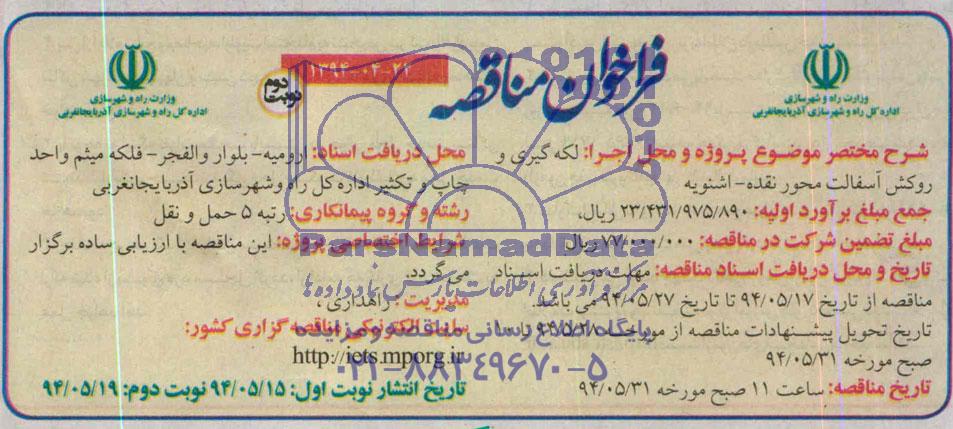 فراخوان مناقصه
۱۳۹۴-۰۴-۲۴
نوبت دوم
وزارت راه و شهرسازی
اداره کل راه و شهرسازی آذربایجانغربی
وزارت راه و شهرسازی
اداره کل راه و شهرسازی آذربایجانغربی
شرح مختصر موضوع پروژه و محل اجرا: لکه گیری و
روکش آسفالت محور نقده- اشنویه
جمع مبلغ برآورد اولیه: ۲۳/۴۳۱/۹۷۵/۸۹۰ ریال،
مبلغ تضمین شرکت در مناقصه: ۷۷۰/۰۰۰/۰۰۰ ریال
تاریخ و محل دریافت اسناد مناقصه: مهلت دریافت اسناد
مناقصه از تاریخ ۹۴/۰۵/۱۷ تا تاریخ ۹۴/۰۵/۲۷ می باشد.
تاریخ تحویل پیشنهادات مناقصه از مورخه
صبح مورخه ۹۴/۰۵/۳۱
تاریخ مناقصه: ساعت ۱۱ صبح مورخه ۹۴/۰۵/۳۱
محل دریافت اسناد: ارومیه- بلوار والفجر- فلکه میثم واحد
چاپ و تکثیر اداره کل راه وشهرسازی آذربایجانغربی
رشته و گروه پیمانکاری: رتبه ۵ حمل و نقل
شرایط اختصاصی پروژه: این مناقصه با ارزیابی ساده برگزار
می گردد.
مدیریت: راهداری،
سایت الکترونیکی مناقصه گزاری کشور:
http://iets.mporg.ir
تاریخ انتشار نوبت اول: ۹۴/۰۵/۱۵ نوبت دوم: ۹۴/۰۵/۱۹
ParsNamadData
مرکز فرآوری اطلاعات پارس نماد داده ها
پایگاه اطلاع رسانی مناقصه و مزایده
۰۲۱-۸۸۳۴۹۶۷۰-۵